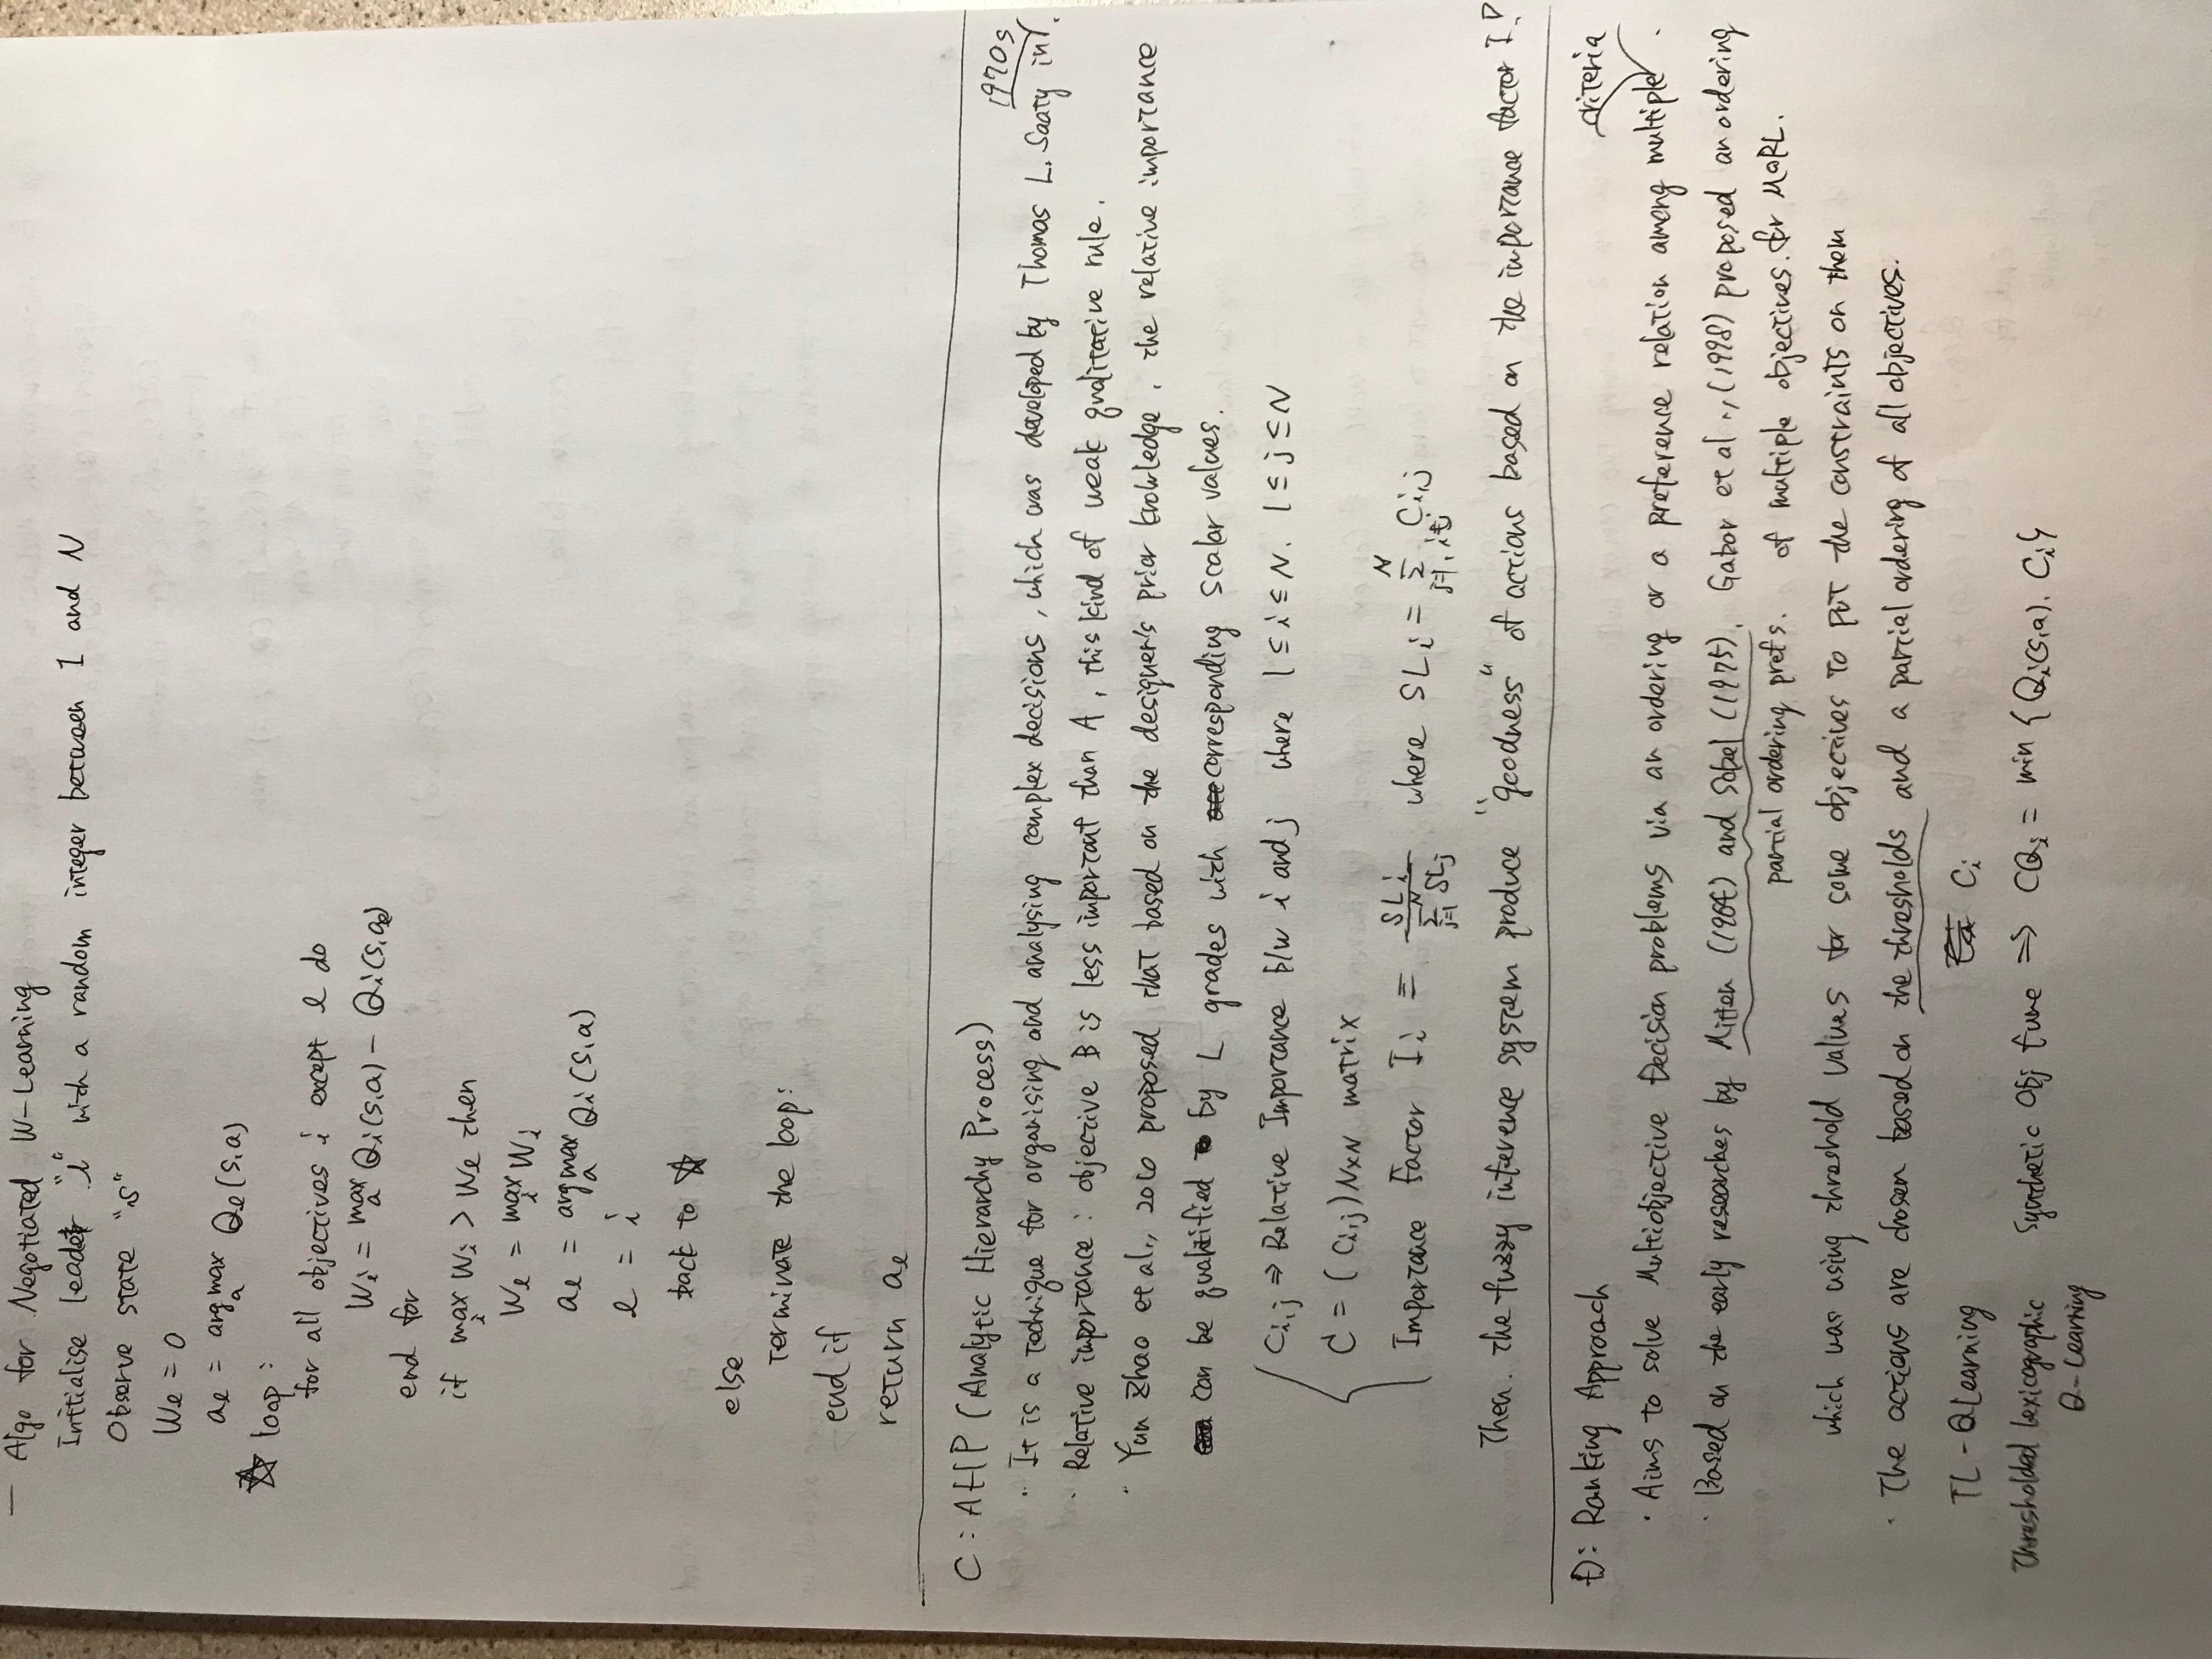 — Algo for Negotiated W-Learning
Initialise leader "l" with a random integer between 1 and N
Observe state "s"
Wℓ = 0
aℓ = argmax_a Qℓ(s,a)
☆ loop:
for all objectives i except ℓ do
Wi = max_a Qi(s,a) − Qi(s,aℓ)
end for
if max_i Wi > Wℓ then
Wℓ = max_i Wi
aℓ = argmax_a Qi(s,a)
ℓ = i
back to ☆
else
terminate the loop:
end if
return aℓ
C: AHP (Analytic Hierarchy Process)
· It is a technique for organising and analysing complex decisions, which was developed by Thomas L. Saaty in 1970s.
· Relative importance: objective B is less important than A, this kind of weak qualitative rule.
· Yun Zhao et al., 2010 proposed that based on the designer's prior knowledge, the relative importance
can be quantified by L grades with corresponding scalar values.
Ci,j ⇒ Relative Importance b/w i and j where 1 ≤ i ≤ N. 1 ≤ j ≤ N
C = (Ci,j)N×N matrix
Importance Factor Ii = SLi / Σ_{j=1}^{N} SLj where SLi = Σ_{j=1, i≠j}^{N} Ci,j
Then. the fuzzy inference system produce "goodness" of actions based on the importance factor I!
D: Ranking Approach
· Aims to solve Multiobjective Decision problems via an ordering or a preference relation among multiple criteria.
· Based on the early researches by Mitten (1964) and Sobel (1975), Gabor et al., (1998) proposed an ordering
partial ordering prefs. of multiple objectives. for MORL.
which was using threshold values for some objectives to put the constraints on them
· The actions are chosen based on the thresholds and a partial ordering of all objectives.
TL - QLearning Ci
Thresholded Lexicographic Synthetic Obj func ⇒ CQi = min {Qi(s,a), Ci}
Q-Learning